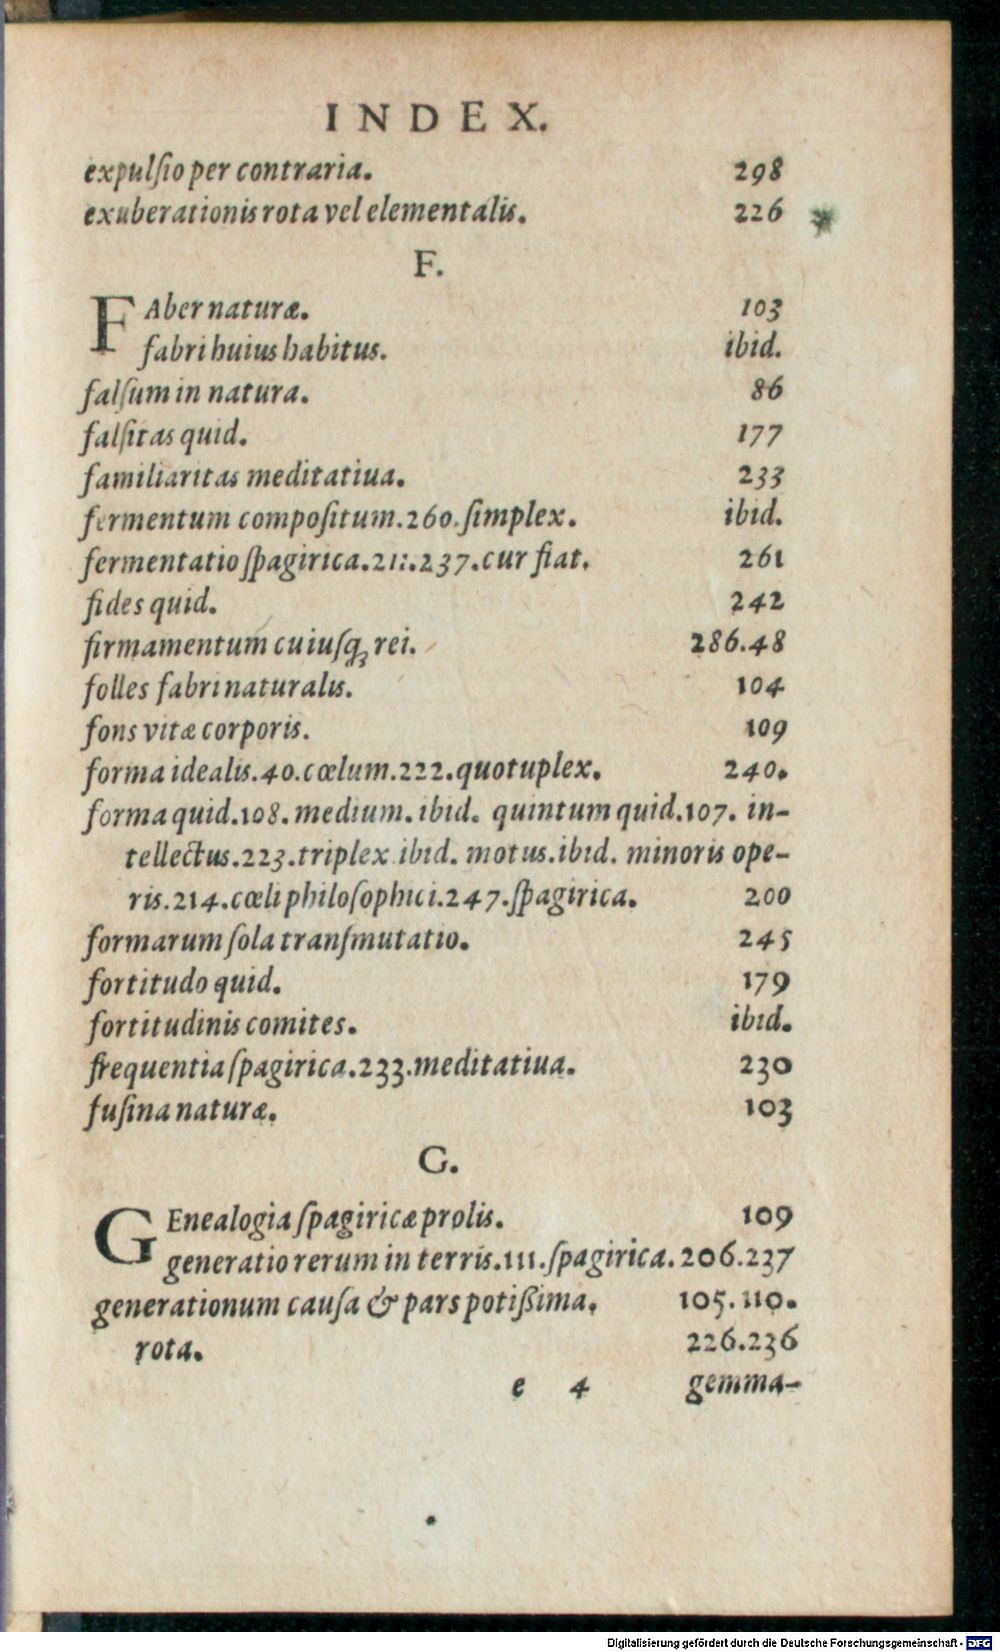 INDEX.
expulſio per contraria. 298
exuberationis rota vel elementalis. 226
F.
FAber naturæ. 103
fabri huius habitus. ibid.
falſum in natura. 86
falſitas quid. 177
familiaritas meditatiua. 233
fermentum compoſitum.260.ſimplex. ibid.
fermentatio ſpagirica.211.237.cur fiat. 261
fides quid. 242
firmamentum cuiuſq; rei. 286.48
folles fabri naturalis. 104
fons vitæ corporis. 109
forma idealis.40.cœlum.222.quotuplex. 240.
forma quid.108.medium.ibid. quintum quid.107. in-
tellectus.223.triplex ibid. motus.ibid. minoris ope-
ris.214.cœli philoſophici.247.ſpagirica. 200
formarum ſola tranſmutatio. 245
fortitudo quid. 179
fortitudinis comites. ibid.
frequentia ſpagirica.233.meditatiua. 230
fuſina naturæ. 103
G.
GEnealogia ſpagiricæ prolis. 109
generatio rerum in terris.111.ſpagirica. 206.237
generationum cauſa & pars potißima. 105.110.
rota. 226.236
e 4 gemma-
Digitalisierung gefördert durch die Deutsche Forschungsgemeinschaft - DFG